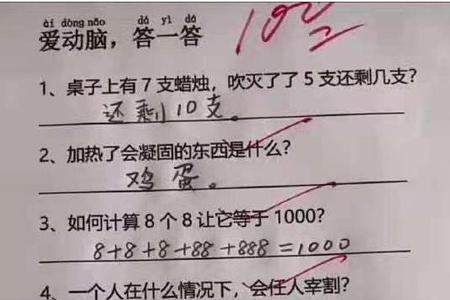 ài dòng nǎo dá yì dá
爱动脑，答一答
100
1、桌子上有7支蜡烛，吹灭了了5支还剩几支？
还剩10支。
2、加热了会凝固的东西是什么？
鸡蛋。
3、如何计算8个8让它等于1000？
8+8+8+88+888=1000
4、一个人在什么情况下，会任人宰割？